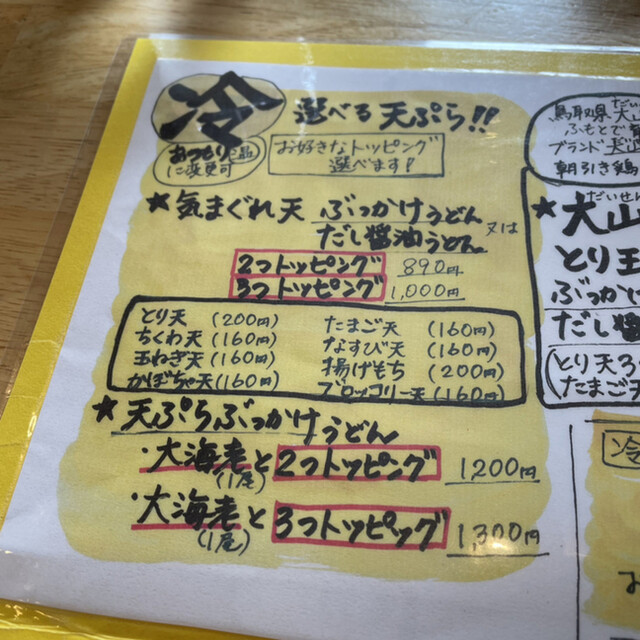 冷
選べる天ぷら!!
あつもり
に変更可
お好きなトッピング
選べます!
★気まぐれ天 ぶっかけうどん
又は
だし醤油うどん。
2つトッピング 890円
3つトッピング 1,000円
とり天 (200円) たまご天 (160円)
ちくわ天(160円) なすび天 (160円)
玉ねぎ天(160円) 揚げもち (200円)
かぼちゃ天(160円) ブロッコリー天(160円)
★天ぷらぶっかけうどん
・大海老と2つトッピング 1200円
(1尾)
・大海老と3つトッピッグ 1,300円
(1尾)
鳥取県大山
ふもとで
ブランド
朝引き鶏
だいせん
★大山
とり王
ぶっかけ
だし醤
(とり天3
たまご天
冷